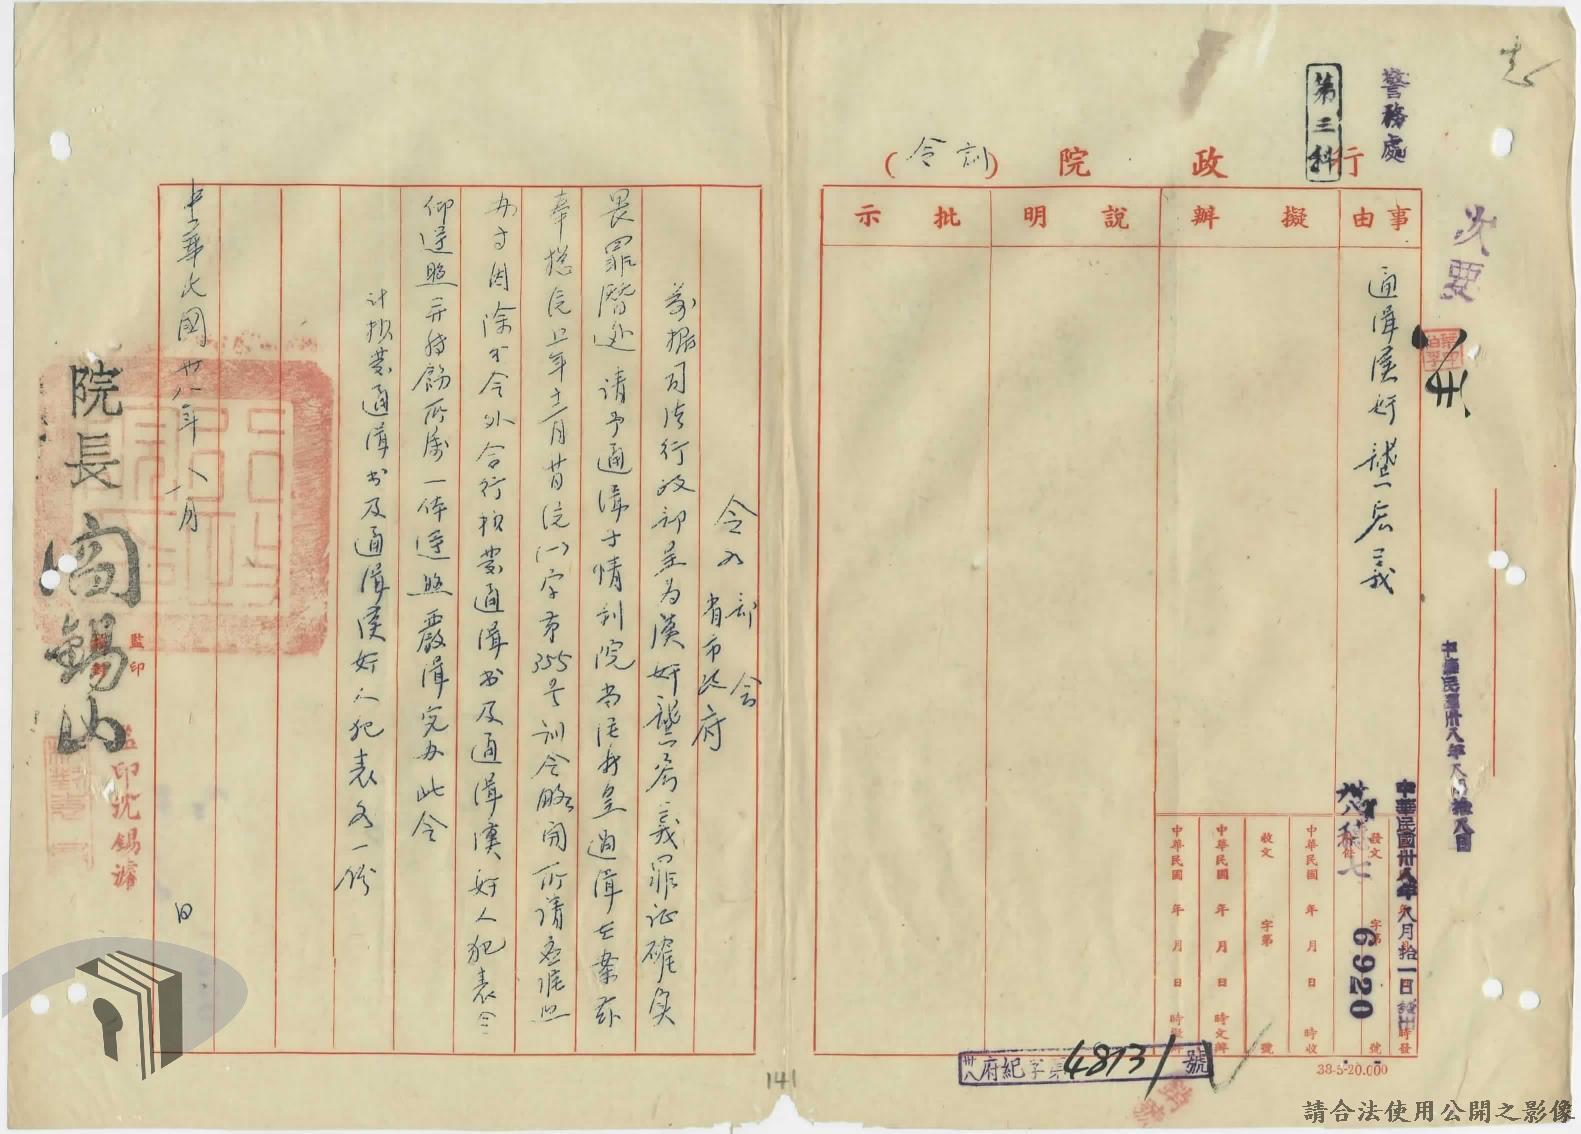 志
警務處
第三科
次要
行政院(訓令)
事由
擬辦
說明
批示
通緝漢奸龔宏義
中華民國卅八年八月拾八日
中華民國卅八年八月拾一日發出
發文 字第 號
附件
卅八穗七
6920
中華民國 年 月 日 時收
收文 字第 號
中華民國 年 月 日 時交辦
中華民國 年 月 日 時擬辦
38-5-20.000
卅八府紀字第48131號
令各部會
省市政府
案據司法行政部呈為漢奸龔宏義罪证確鑿
畏罪潛逃請予通緝等情到院當经轉呈通緝在案茲
奉總统卅八年十二月廿日统(一)字第355号訓令略開所請應准照
办等因除分令外合行抄發通緝书及通緝漢奸人犯表令
仰遵照并转飭所属一体遵照嚴緝究办此令
計抄發通緝书及通緝漢奸人犯表各一份
中華民國卅八年八月 日
院長閻錫山
監印
校對
監印沈錫濂
141
請合法使用公開之影像